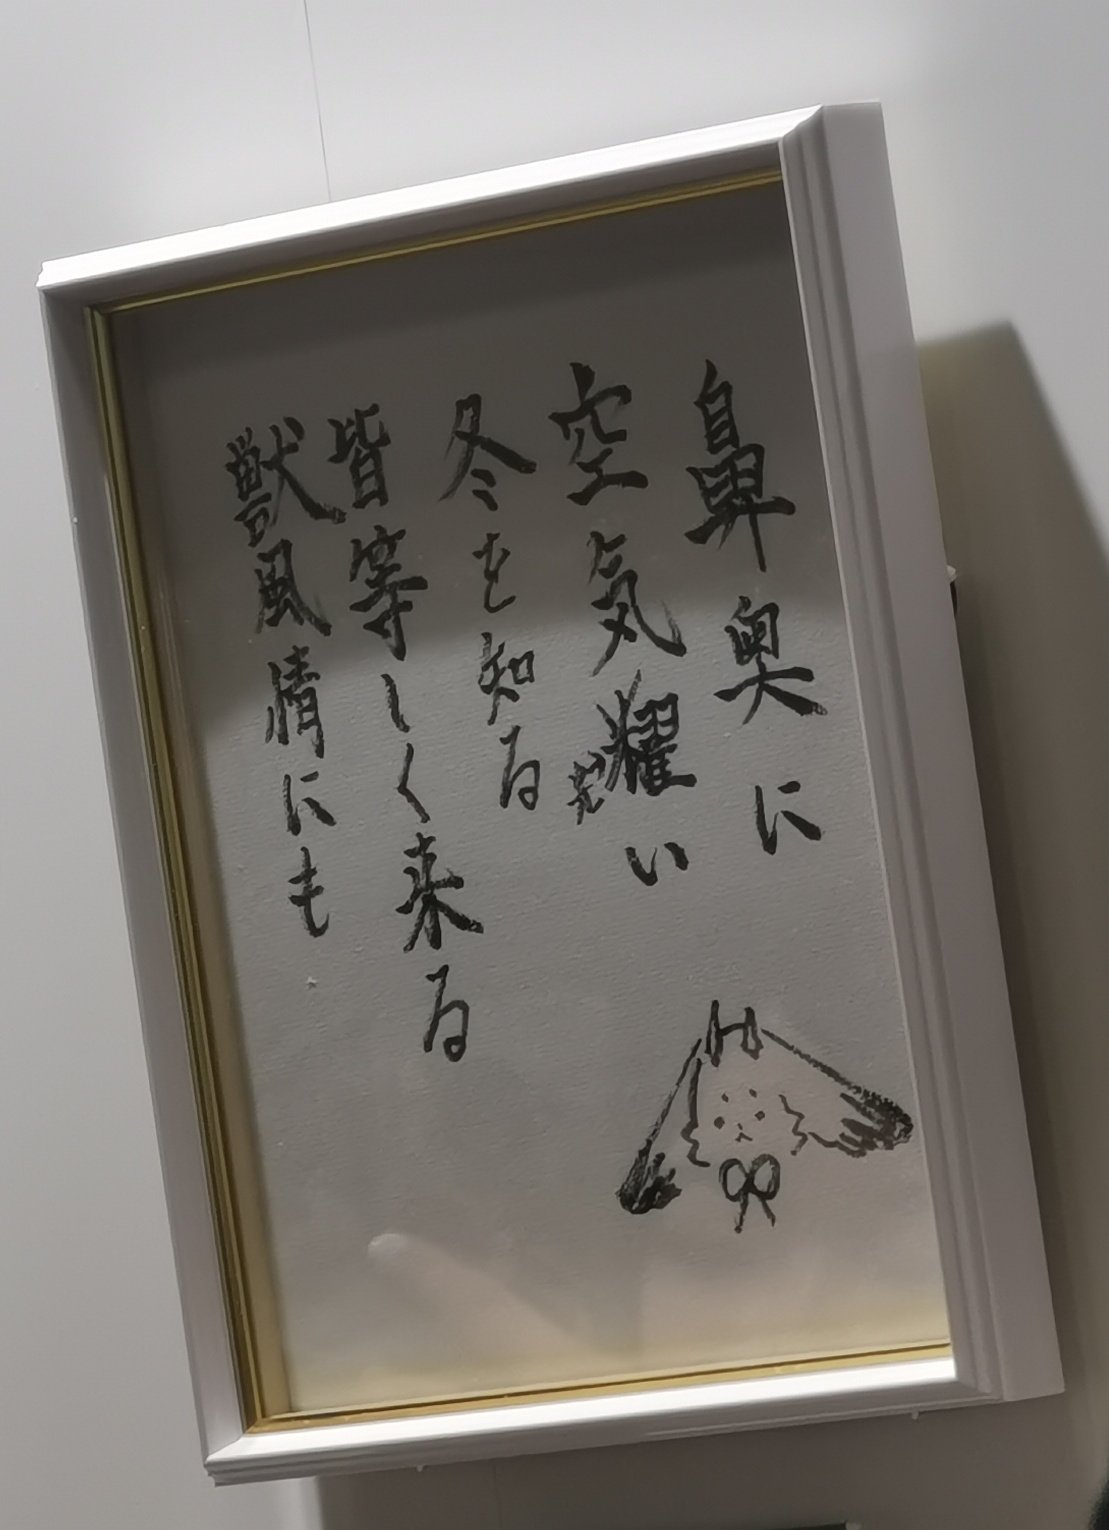 鼻奥に
空気耀い
冬を知る
皆等しく来る
獣風情にも